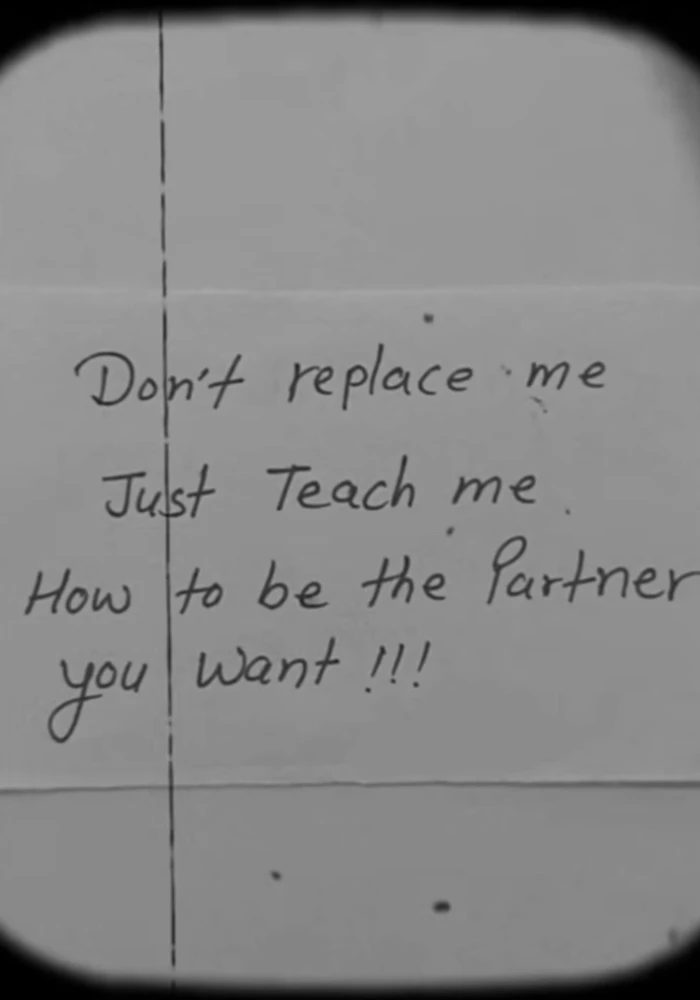 Don't replace me
Just Teach me
How to be the Partner
you want !!!